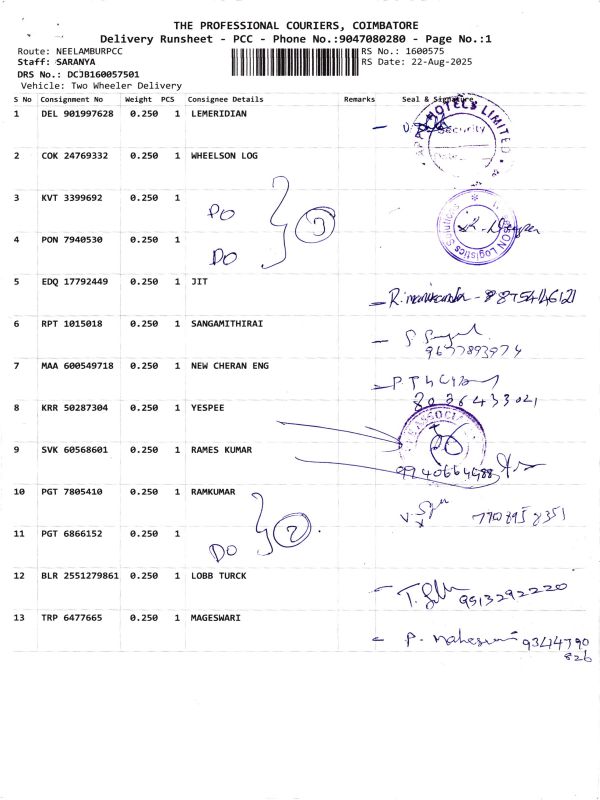 THE PROFESSIONAL COURIERS, COIMBATORE
Delivery Runsheet - PCC - Phone No.:9047080280 - Page No.:1
Route: NEELAMBURPCC
RS No.: 1600575
Staff: SARANYA
RS Date: 22-Aug-2025
DRS No.: DCJB160057501
Vehicle: Two Wheeler Delivery
S No Consignment No Weight PCS Consignee Details Remarks Seal & Signature
1 DEL 901997628 0.250 1 LEMERIDIAN
HOTELS LIMITED
Security
2 COK 24769332 0.250 1 WHEELSON LOG
3 KVT 3399692 0.250 1
PO
3
SON Logistics Solutions
4 PON 7940530 0.250 1
DO
5 EDQ 17792449 0.250 1 JIT
R. manikanda - 8875446121
6 RPT 1015018 0.250 1 SANGAMITHIRAI
9677893974
7 MAA 600549718 0.250 1 NEW CHERAN ENG
8036433021
8 KRR 50287304 0.250 1 YESPEE
ASSOCIA
9 SVK 60568601 0.250 1 RAMES KUMAR
9940664588
10 PGT 7805410 0.250 1 RAMKUMAR
2
7708958351
11 PGT 6866152 0.250 1
DO
12 BLR 2551279861 0.250 1 LOBB TURCK
9513292220
13 TRP 6477665 0.250 1 MAGESWARI
P. Maheswari 9344790
826